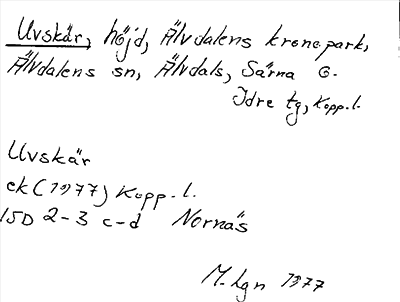 Uvskär, höjd, Älvdalens kronopark,
Älvdalens sn, Älvdals, Särna o.
Idre tg, Kopp.l.
Uvskär
ek (1977) Kopp.l.
15D 2-3 c-d Nornäs
M.Lgn 1977